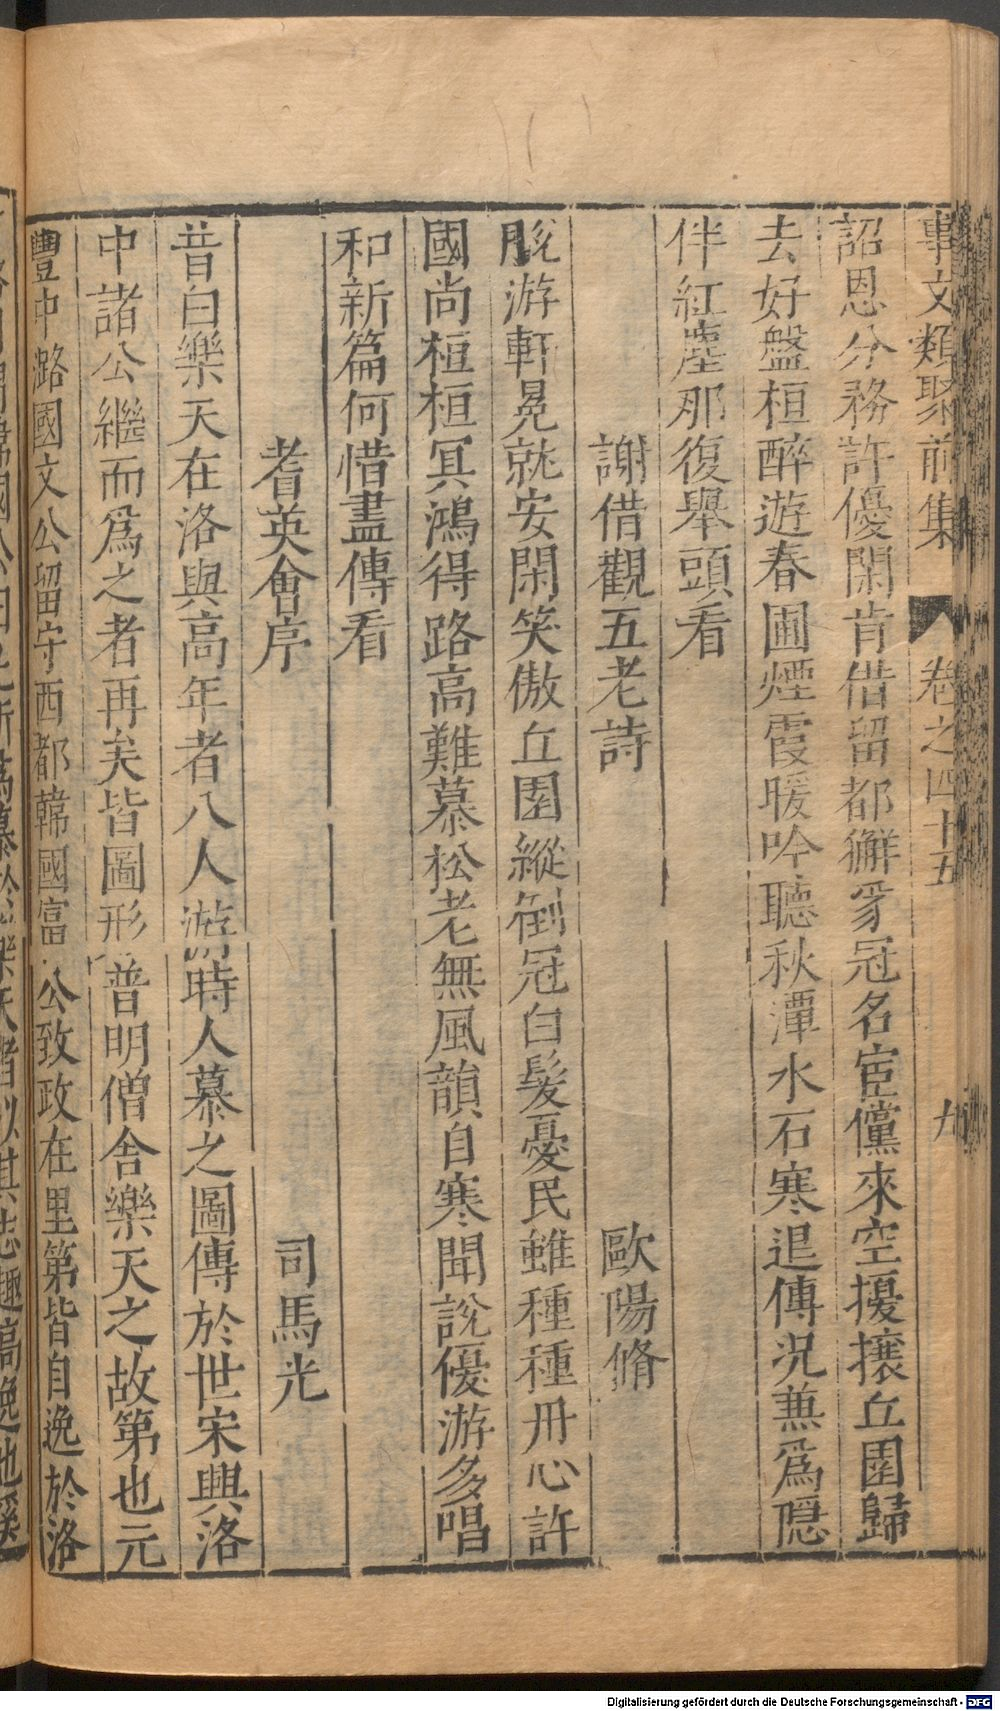 事文類聚前集 卷之四十五 九
詔恩分務許優閑肯借留都獬豸冠名宦儻來空擾攘丘園歸
去好盤桓醉遊春圃煙霞暖吟聽秋潭水石寒退傳况兼爲隱
伴紅塵那復舉頭看
謝借觀五老詩 歐陽脩
脫游軒冕就安閑笑傲丘園縱倒冠白髮憂民雖種種丹心許
國尚桓桓冥鴻得路高難慕松老無風韻自寒聞說優游多唱
和新篇何惜盡傳看
耆英會序 司馬光
昔白樂天在洛與高年者八人游時人慕之圖傳於世宋興洛
中諸公繼而爲之者再矣皆圖形普明僧舍樂天之故第也元
豐中潞國文公留守西都韓國富公致政在里第皆自逸於洛
爲慕於樂天者以其志趣高逸也奚
Digitalisierung gefördert durch die Deutsche Forschungsgemeinschaft - DFG